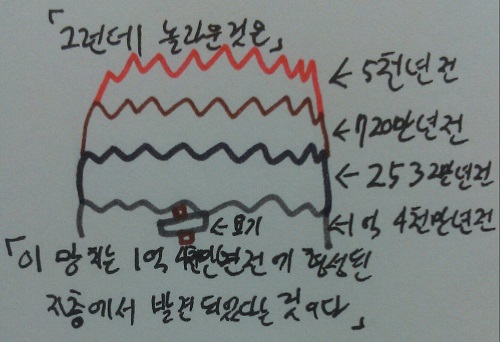 「그런데 놀라운것은」
←5천년전
←720만년전
←2532만년전
←1억 4천만년전
←요기
「이 망치는 1억 4천만년전에 형성된
지층에서 발견되었다는 것이다」